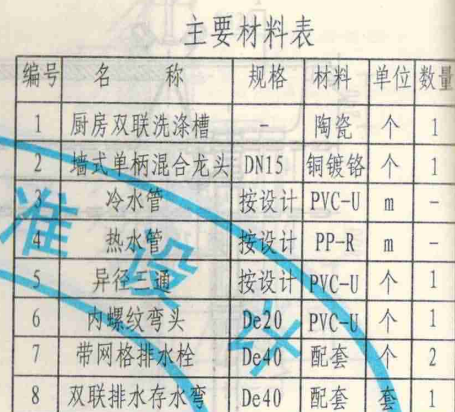 主要材料表
编号 名称 规格 材料 单位 数量
1 厨房双联洗涤槽 - 陶瓷 个 1
2 墙式单柄混合龙头 DN15 铜镀铬 个 1
3 冷水管 按设计 PVC-U m -
4 热水管 按设计 PP-R m -
5 异径三通 按设计 PVC-U 个 1
6 内螺纹弯头 De20 PVC-U 个 1
7 带网格排水栓 De40 配套 个 2
8 双联排水存水弯 De40 配套 套 1
准设计